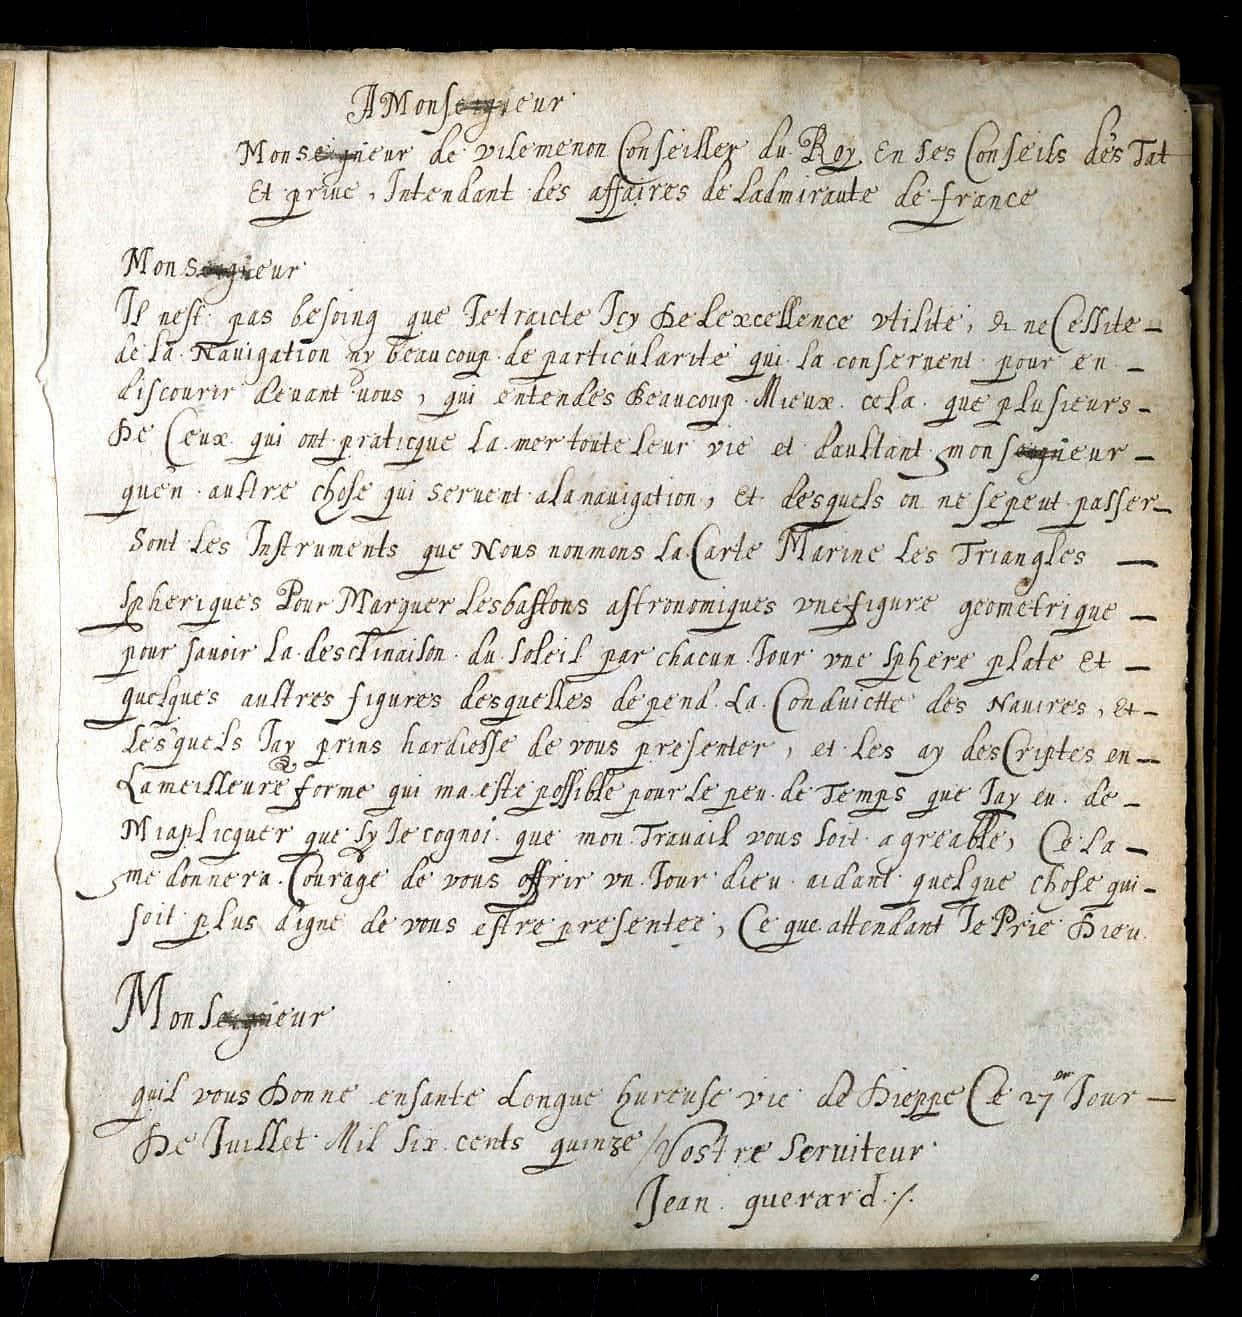 A Monseigneur
Monseigneur de vilemenon Conseiller du Roy En ses Conseils des Tat
Et prive, Intendant des affaires de Ladmiraute de france
Monseigneur
Il nest pas besoing que Je traicte Icy De Lexcellence vtilité, & neCessite
de la Nauigation ny beaucoup de particularité qui la conseruent pour en
discourir deuant vous, qui entendes Beaucoup Mieux cela que plusieurs
De Ceux qui ont praticque La mer toute leur vie et daultant monseigneur
quen aultre chose qui seruent a la nauigation, Et desquels on ne se peut passer
Sont Les Instruments que Nous nonmons La Carte Marine Les Triangles
Spheriques Pour Marquer Les bastons astronomiques vne figure geometrique
pour sauoir La desclinaison du Soleil par chacun Jour vne Sphere plate Et
quelques aultres figures desquelles depend La Conduictte des Nauires, Et
Lesquels Jay prins hardiesse de vous presenter, et Les ay desCriptes en
La meilleure forme qui ma este possible pour Le peu de Temps que Jay eu de
Miaplicquer que sy Je cognoi que mon Trauail vous soit agreable, Ce La
me donnera Courage de vous offrir vn Jour dieu aidant quelque chose qui
soit plus digne de vous estre presentee, Ce que attendant Je Prie Dieu
Monseigneur
quil vous Donne en sante Longue hureuse vie de Dieppe Ce 27 Jour
De Juillet Mil Six cents quinze / Vostre Seruiteur
Jean guerard ./.